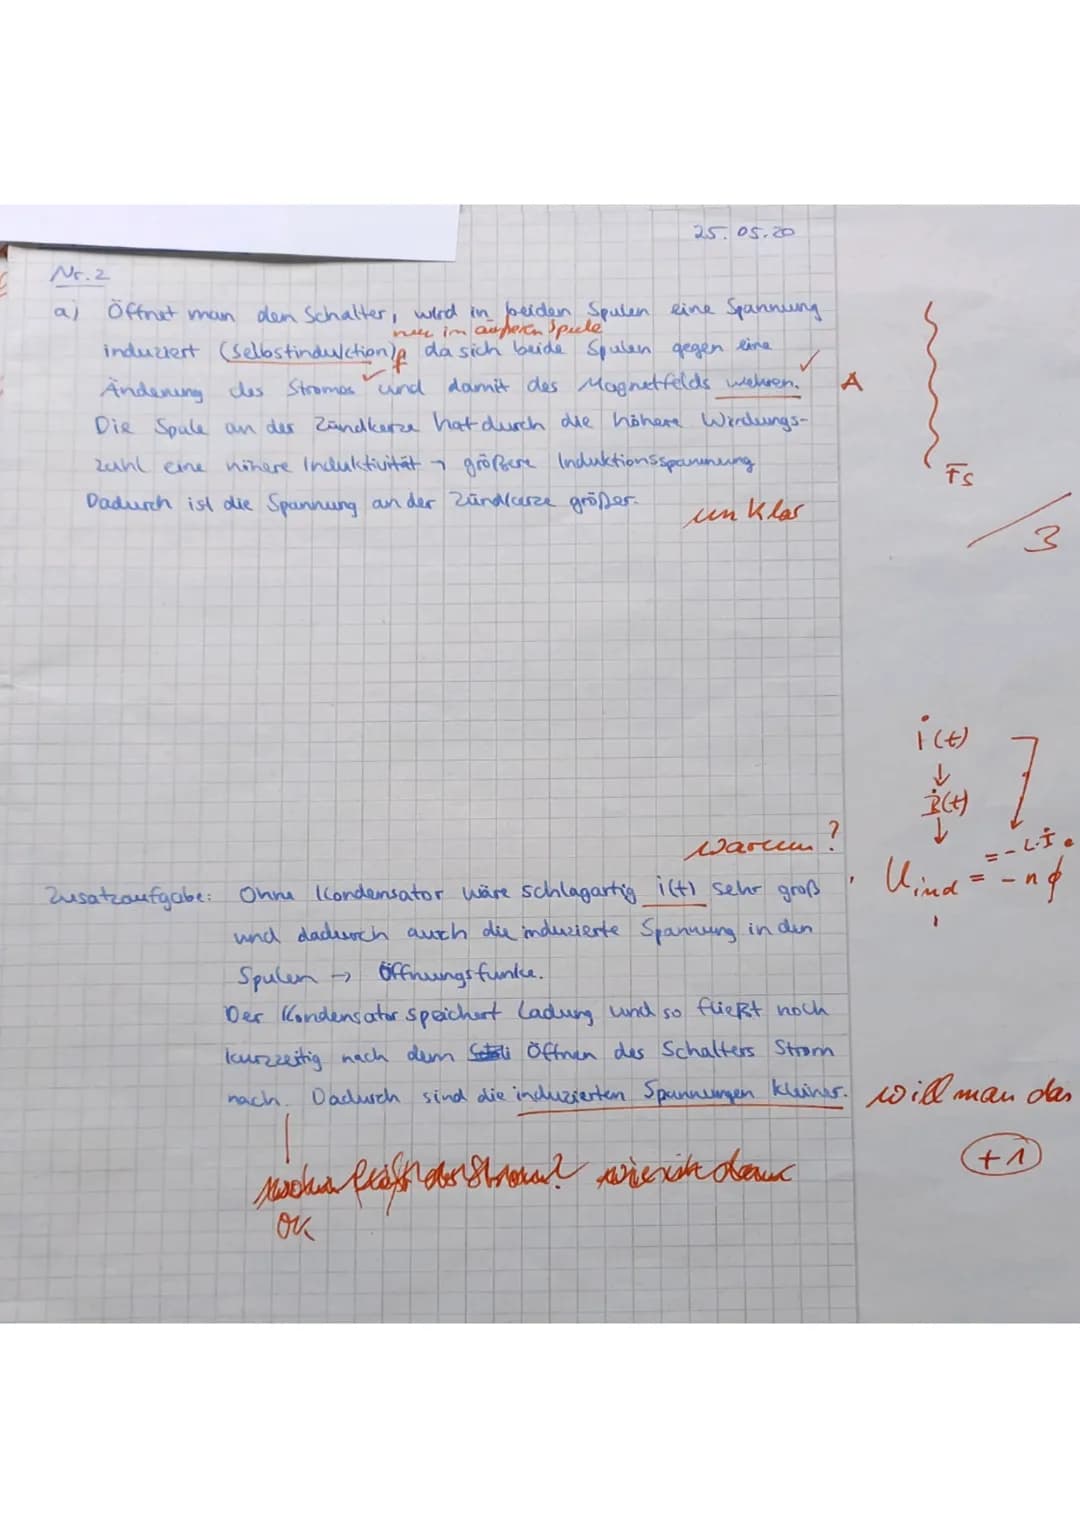 25.05.20
Nr. 2
a) Öffnet man den Schalter, wird in beiden Spulen eine Spannung
nur im äußeren Spule
induziert (Selbstinduktion), da sich beide Spulen gegen eine
f
Änderung des Stromes und damit des Magnetfelds wehren. A
Die Spule an der Zündkerze hat durch die höhere Windungs-
zahl eine höhere Induktivität → größere Induktionsspannung
Fs
Dadurch ist die Spannung an der Zündkerze größer.
unklar
/3
i(t)
↓
Ḃ(t)
↓
warum?
= - L·İ
Zusatzaufgabe: Ohne Kondensator wäre schlagartig i(t) sehr groß
Uind = - n ϕ
und dadurch auch die induzierte Spannung in den
Spulen → Öffnungsfunke.
Der Kondensator speichert Ladung und so fließt noch
kurzzeitig nach dem Öffnen des Schalters Strom
nach. Dadurch sind die induzierten Spannungen kleiner. will man das
+1
der Strom?
OK